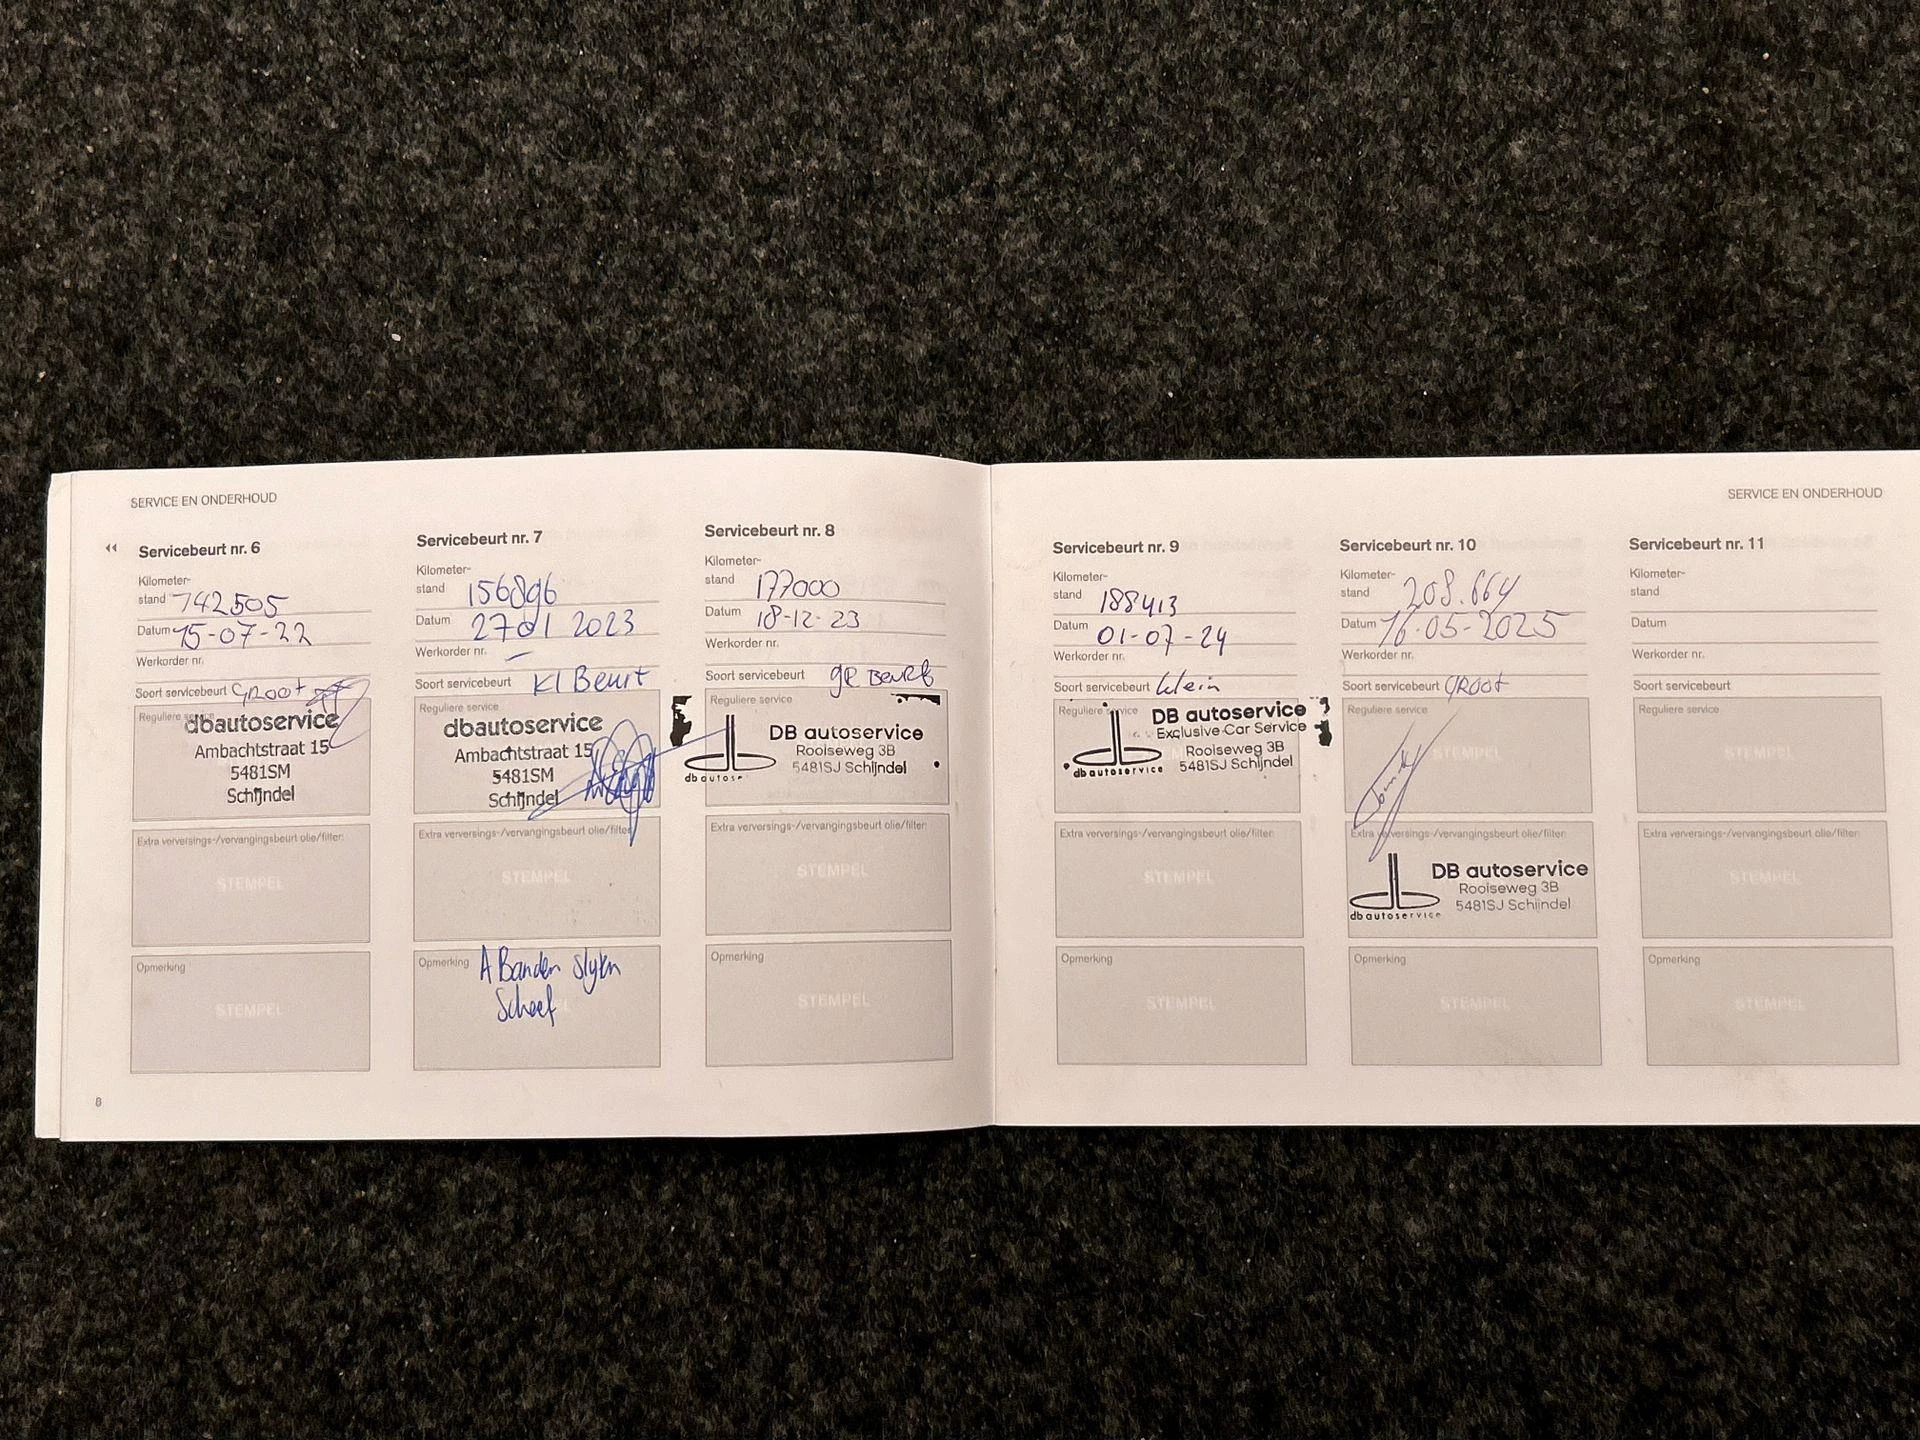 SERVICE EN ONDERHOUD
Servicebeurt nr. 6
Kilometer-
stand 142505
Datum 15-07-22
Werkorder nr.
Soort servicebeurt GROOT
Reguliere service
dbautoservice
Ambachtstraat 15
5481SM
Schijndel
Extra verversings-/vervangingsbeurt olie/filter:
STEMPEL
Opmerking
STEMPEL
8
Servicebeurt nr. 7
Kilometer-
stand 156896
Datum 27 01 2023
Werkorder nr.
Soort servicebeurt Kl Beurt
Reguliere service
dbautoservice
Ambachtstraat 15
5481SM
Schijndel
Extra verversings-/vervangingsbeurt olie/filter:
STEMPEL
Opmerking A Banden slyten
Scheef
Servicebeurt nr. 8
Kilometer-
stand 177000
Datum 18-12-23
Werkorder nr.
Soort servicebeurt gR Beurt
Reguliere service
DB autoservice
Rooiseweg 3B
5481SJ Schijndel
Extra verversings-/vervangingsbeurt olie/filter:
STEMPEL
Opmerking
STEMPEL
SERVICE EN ONDERHOUD
Servicebeurt nr. 9
Kilometer-
stand 188413
Datum 01-07-24
Werkorder nr.
Soort servicebeurt klein
Reguliere service
DB autoservice
Exclusive Car Service
Rooiseweg 3B
5481SJ Schijndel
db autoservice
Extra verversings-/vervangingsbeurt olie/filter:
STEMPEL
Opmerking
STEMPEL
Servicebeurt nr. 10
Kilometer-
stand 208.664
Datum 16-05-2025
Werkorder nr.
Soort servicebeurt GROOT
Reguliere service
Extra verversings-/vervangingsbeurt olie/filter:
DB autoservice
Rooiseweg 3B
5481SJ Schijndel
db autoservice
Opmerking
STEMPEL
Servicebeurt nr. 11
Kilometer-
stand
Datum
Werkorder nr.
Soort servicebeurt
Reguliere service
STEMPEL
Extra verversings-/vervangingsbeurt olie/filter:
STEMPEL
Opmerking
STEMPEL